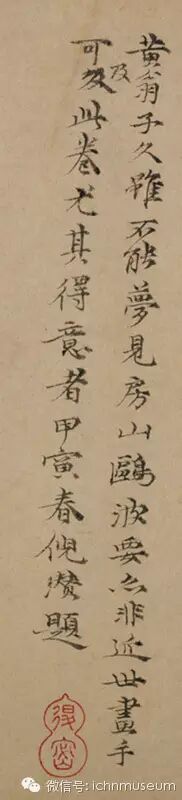 黄翁子久雖不能夢見房山鷗波要亦非近世畫手
可及此卷尤其得意者甲寅春倪瓚題
及
得密
微信号: ichnmuseum